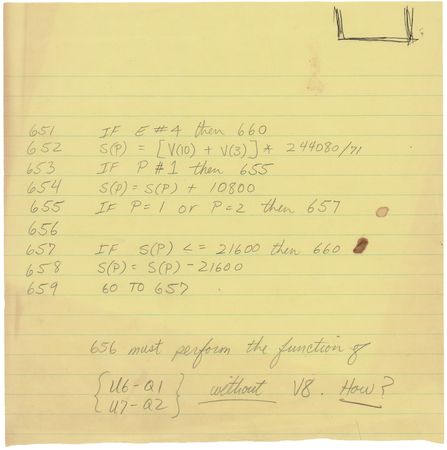 651 IF E # 4 then 660
652 S(P) = [V(10) + V(3)] * 244080/71
653 IF P # 1 then 655
654 S(P) = S(P) + 10800
655 IF P = 1 or P = 2 then 657
656
657 IF S(P) <= 21600 then 660
658 S(P) = S(P) - 21600
659 GO TO 657
656 must perform the function of
{ U6-Q1
U7-Q2 } without V8. How?